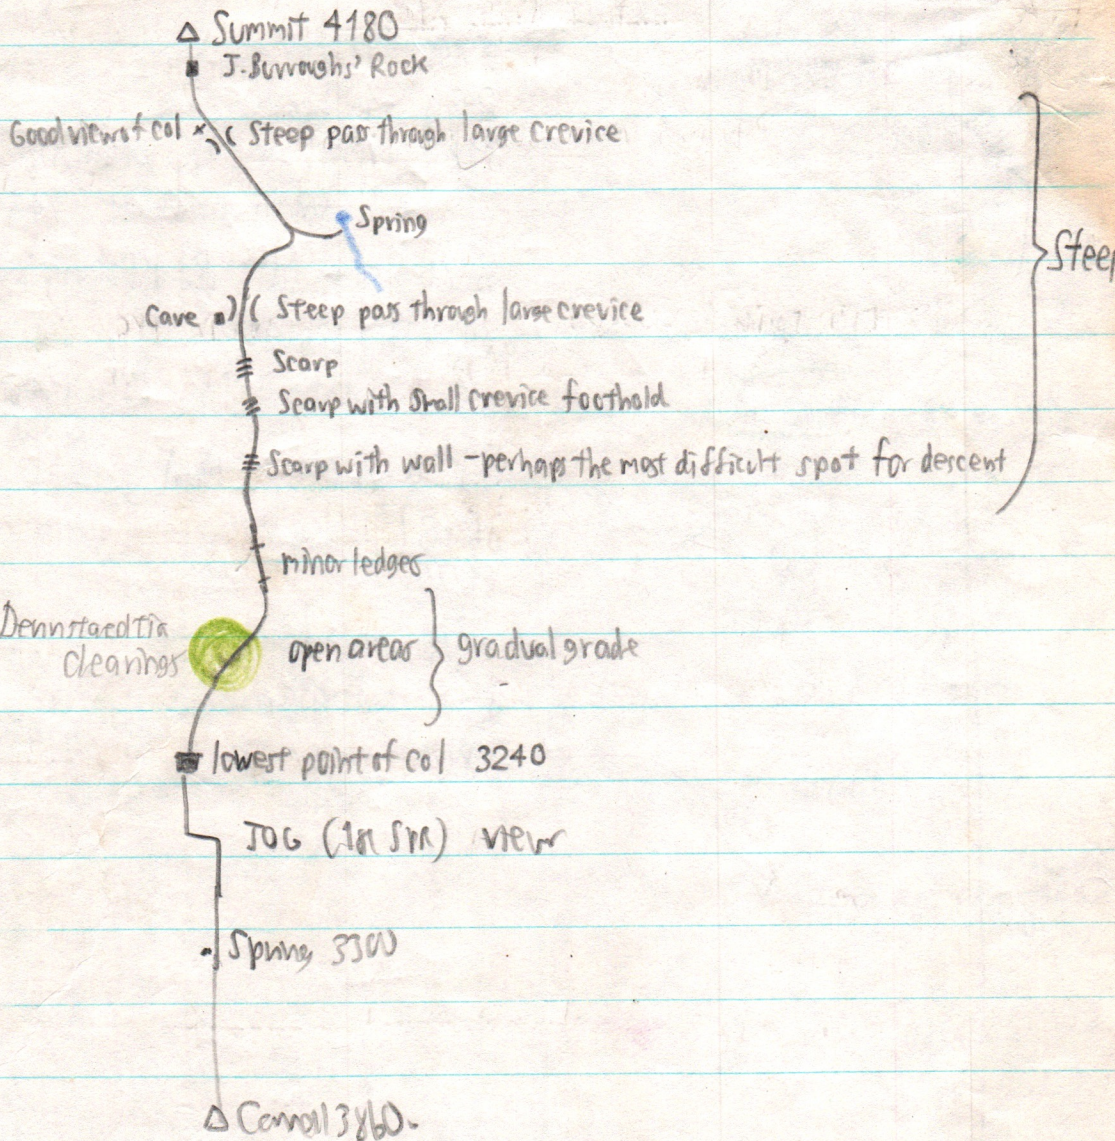 Summit 4180
J. Burroughs' Rock
Good view of col
Steep pass through large crevice
Spring
Steep
Cave
Steep pass through large crevice
Scarp
Scarp with small crevice foothold
Scarp with wall - perhaps the most difficult spot for descent
minor ledges
Dennstaedtia
clearings
open areas
gradual grade
lowest point of col 3240
JOG (1st SPR) view
Spring 3300
Cornell 3860.